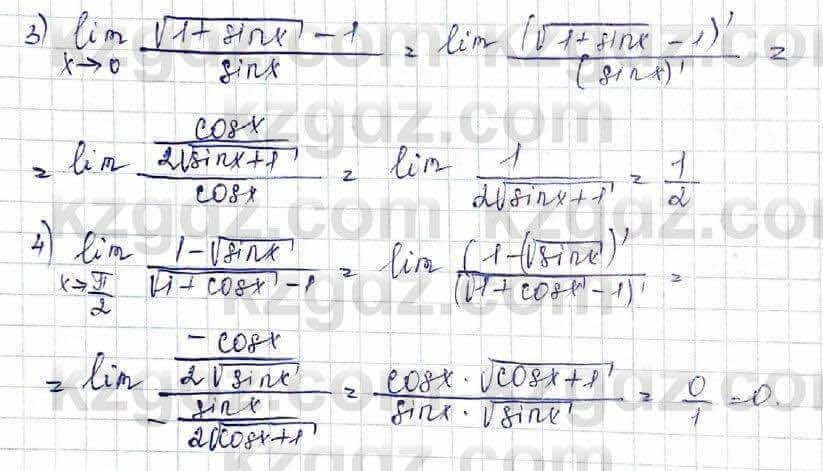 3) lim x→0 (√(1+sinx) − 1)/(sinx) = lim (√(1+sinx) − 1)'/(sinx)' =
= lim (cosx/(2√(sinx+1)))/(cosx) = lim 1/(2√(sinx+1)) = 1/2
4) lim x→π/2 (1−√(sinx))/(√(1+cosx) − 1) = lim (1−(√(sinx))'/(√(1+cosx) − 1)' =
= lim (−cosx/(2√(sinx)))/(−sinx/(2√(cosx+1))) = (cosx · √(cosx+1))/(sinx · √(sinx)) = 0/1 = 0.
kzgdz.com